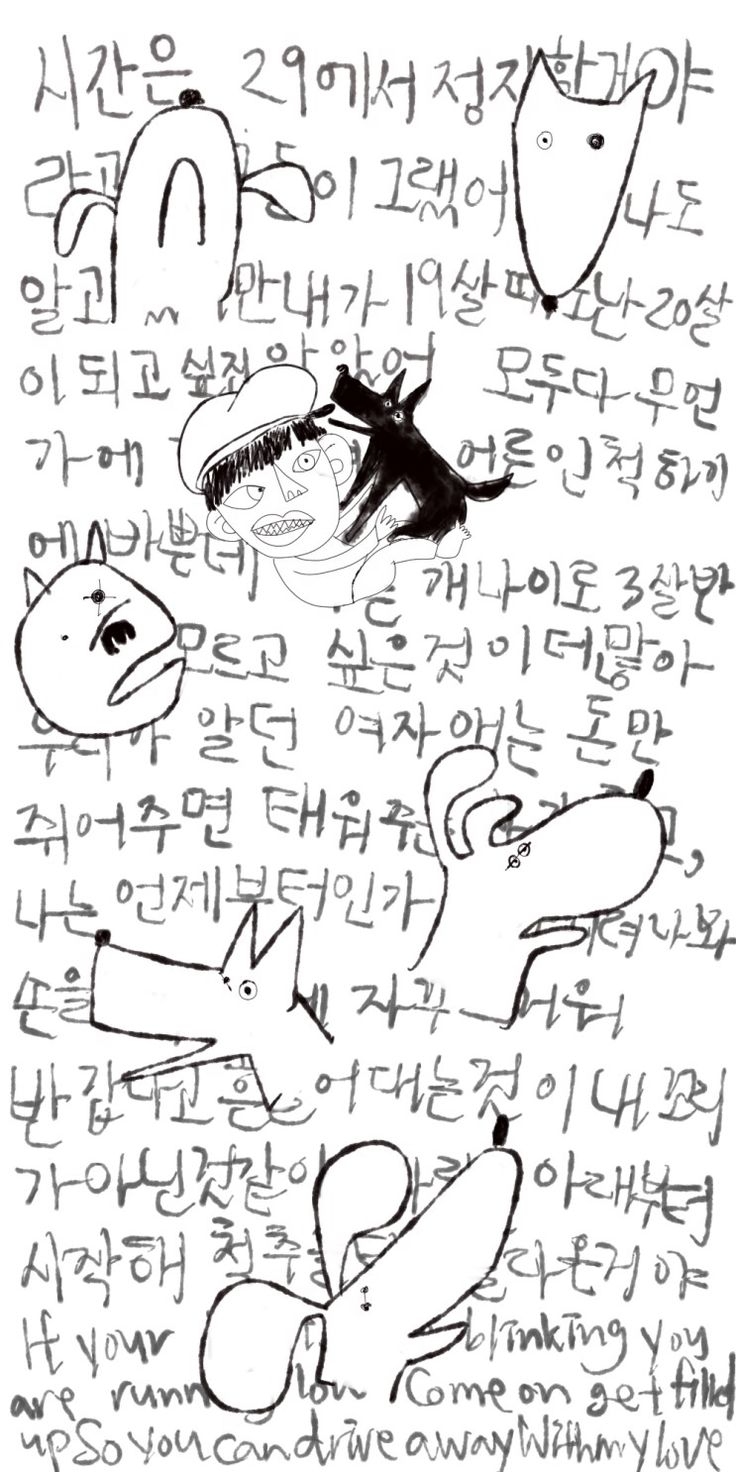 시간은 29에서 정지할거야
라고 이 그랬어 나도
알고 만 내가 19살 때도 난 20살
이 되고 싶진 않았어 모두다 무언
가에 어른인척 하기
에 바쁜데
개나이로 3살반
모르고 싶은것이 더많아
우리가 알던 여자애는 돈만
쥐어주면 태워주는
나는 언제부터인가 려나봐
손을 자꾸
반갑다고 흔들어대는것이 내꼬리
가아닌것같아 아래부터
시작해 척추를 올라온거야
If your blinking you
are running low Come on get filld
up So you can drive away With my love